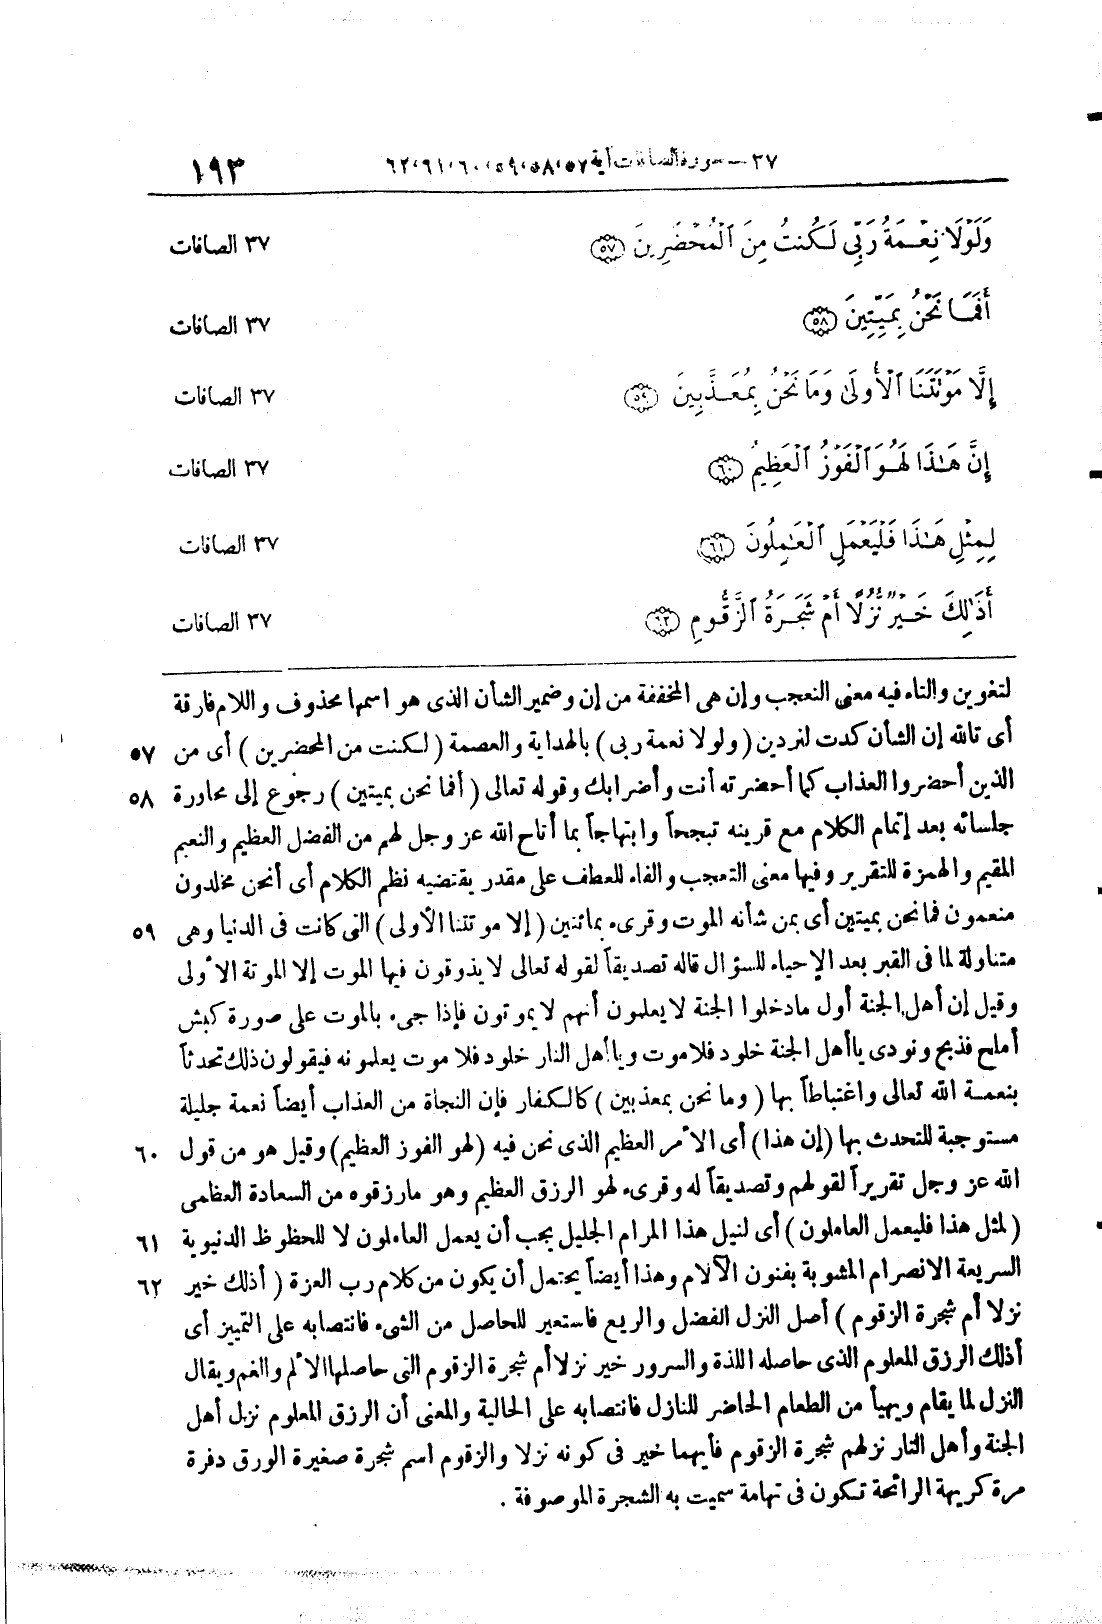 ٣٧ – سورة الصافات آية ٥٧،٥٨،٥٩،٦٠،٦١،٦٢ ١٩٣
وَلَوْلَا نِعْمَةُ رَبِّي لَكُنتُ مِنَ ٱلْمُحْضَرِينَ ﴿٥٧﴾ ٣٧ الصافات
أَفَمَا نَحْنُ بِمَيِّتِينَ ﴿٥٨﴾ ٣٧ الصافات
إِلَّا مَوْتَتَنَا ٱلْأُولَىٰ وَمَا نَحْنُ بِمُعَذَّبِينَ ﴿٥٩﴾ ٣٧ الصافات
إِنَّ هَٰذَا لَهُوَ ٱلْفَوْزُ ٱلْعَظِيمُ ﴿٦٠﴾ ٣٧ الصافات
لِمِثْلِ هَٰذَا فَلْيَعْمَلِ ٱلْعَٰمِلُونَ ﴿٦١﴾ ٣٧ الصافات
أَذَٰلِكَ خَيْرٌ نُّزُلًا أَمْ شَجَرَةُ ٱلزَّقُّومِ ﴿٦٢﴾ ٣٧ الصافات
لتغوين والتاء فيه معنى التعجب وإن هى المخففة من إن وضمير الشأن الذى هو اسمها محذوف واللام فارقة
أى تالله إن الشأن كدت لتردين ( ولولا نعمة ربى ) بالهداية والعصمة ( لكنت من المحضرين ) أى من ٥٧
الذين أحضروا العذاب كما أحضرته أنت وأضرابك وقوله تعالى ( أفما نحن بميتين ) رجوع إلى محاورة ٥٨
جلسائه بعد إتمام الكلام مع قرينه تبجحاً وابتهاجاً بما أتاح الله عز وجل لهم من الفضل العظيم والنعيم
المقيم والهمزة للتقرير وفيها معنى التعجب والفاء للعطف على مقدر يقتضيه نظم الكلام أى أنحن مخلدون
منعمون فما نحن بميتين أى بمن شأنه الموت وقرىء بمائتين ( إلا موتتنا الأولى ) التى كانت فى الدنيا وهى ٥٩
متناولة لما فى القبر بعد الإحياء للسؤال قاله تصديقاً لقوله تعالى لا يذوقون فيها الموت إلا الموتة الأولى
وقيل إن أهل الجنة أول ما دخلوا الجنة لا يعلمون أنهم لا يموتون فإذا جىء بالموت على صورة كبش
أملح فذبح ونودى يا أهل الجنة خلود فلا موت ويا أهل النار خلود فلا موت يعلمونه فيقولون ذلك تحدثاً
بنعمة الله تعالى واغتباطاً بها ( وما نحن بمعذبين ) كالكفار فإن النجاة من العذاب أيضاً نعمة جليلة
مستوجبة للتحدث بها ( إن هذا ) أى الأمر العظيم الذى نحن فيه ( لهو الفوز العظيم ) وقيل هو من قول ٦٠
الله عز وجل تقريراً لقولهم وتصديقاً له وقرىء لهو الرزق العظيم وهو ما رزقوه من السعادة العظمى
( لمثل هذا فليعمل العاملون ) أى لنيل هذا المرام الجليل يجب أن يعمل العاملون لا للحظوظ الدنيوية ٦١
السريعة الانصرام المشوبة بفنون الآلام وهذا أيضاً يحتمل أن يكون من كلام رب العزة ( أذلك خير ٦٢
نزلا أم شجرة الزقوم ) أصل النزل الفضل والريع فاستعير للحاصل من الشىء فانتصابه على التمييز أى
أذلك الرزق المعلوم الذى حاصله اللذة والسرور خير نزلا أم شجرة الزقوم التى حاصلها الألم والغم ويقال
النزل لما يقام ويهيأ من الطعام الحاضر للنازل فانتصابه على الحالية والمعنى أن الرزق المعلوم نزل أهل
الجنة وأهل النار نزلهم شجرة الزقوم فأيهما خير فى كونه نزلا والزقوم اسم شجرة صغيرة الورق دفرة
مرة كريهة الرائحة تكون فى تهامة سميت به الشجرة الموصوفة .